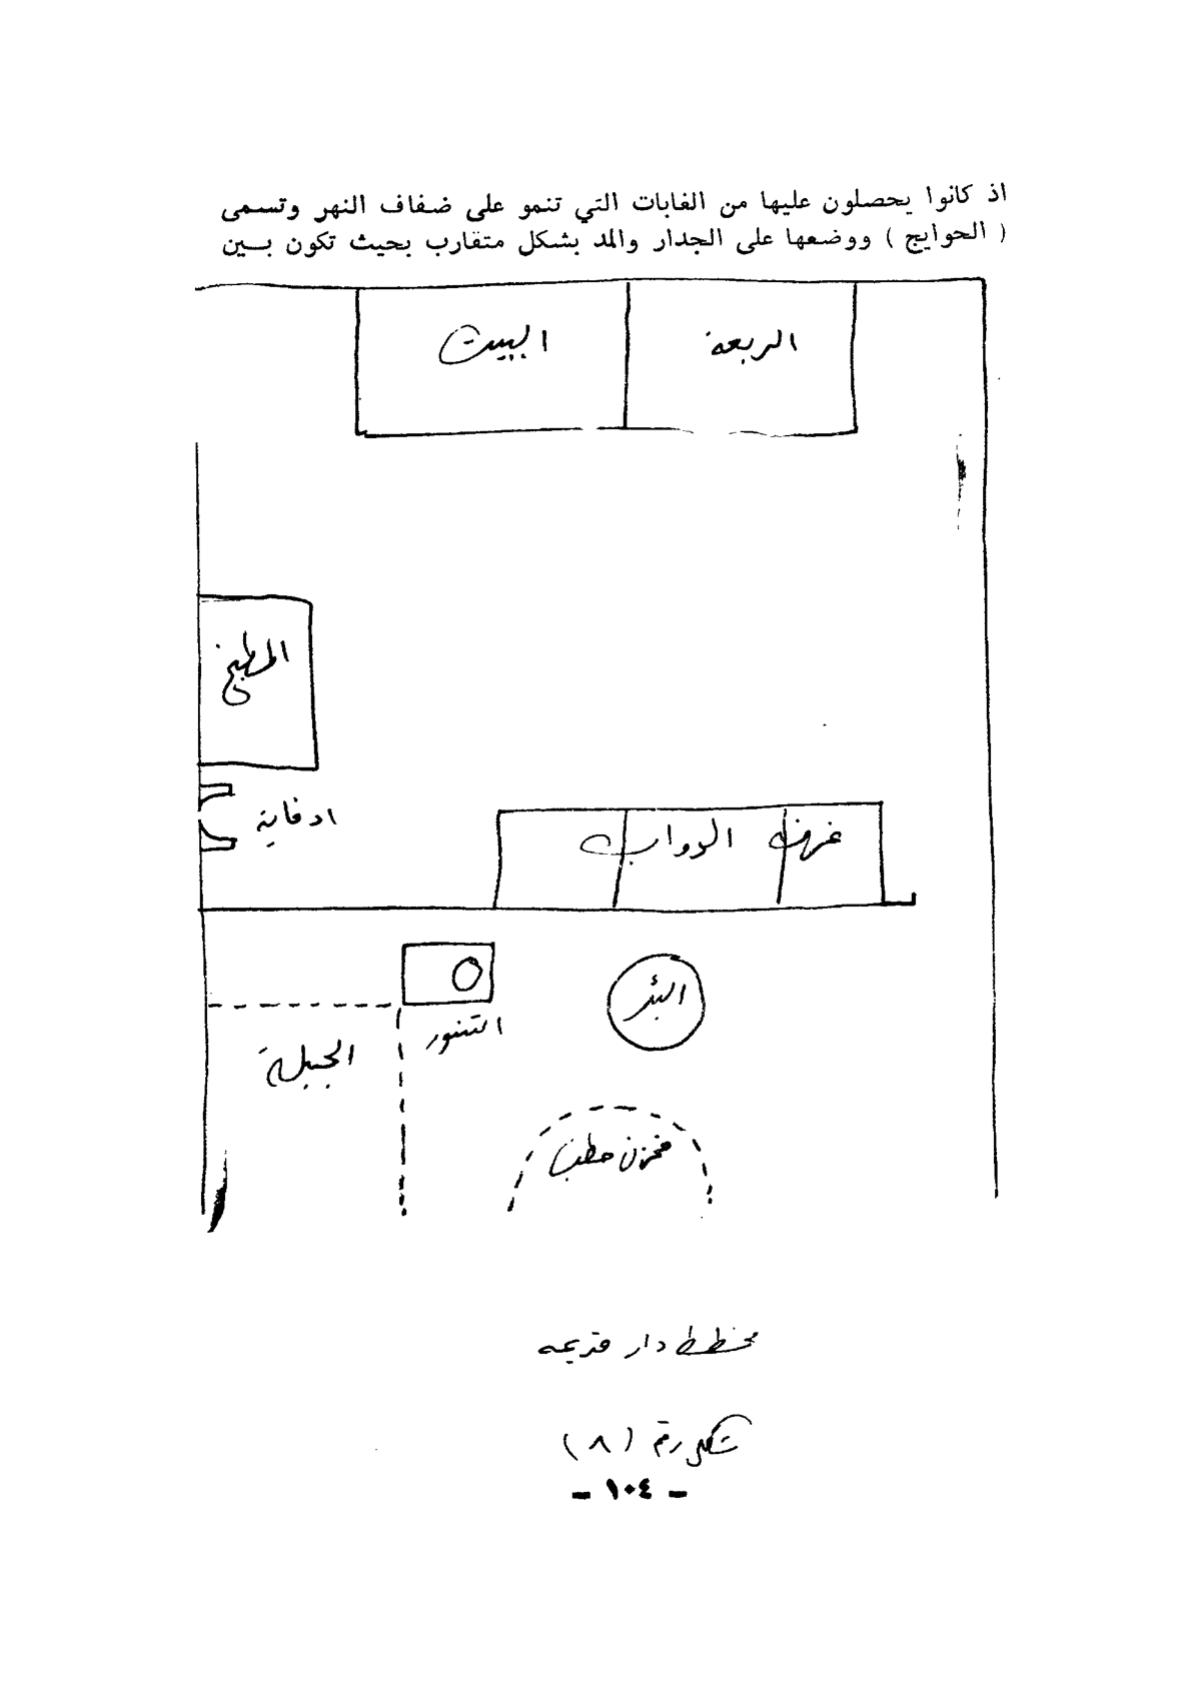 اذ كانوا يحصلون عليها من الغابات التي تنمو على ضفاف النهر وتسمى
( الحوايج ) ووضعها على الجدار والمد بشكل متقارب بحيث تكون بـين
الربعة
البيت
المطبخ
ادفاية
غرف الدواب
البئر
التنور
الجبلة
مخزن حطب
مخطط دار قديمه
شكل رقم (٨)
- ١٠٤ -